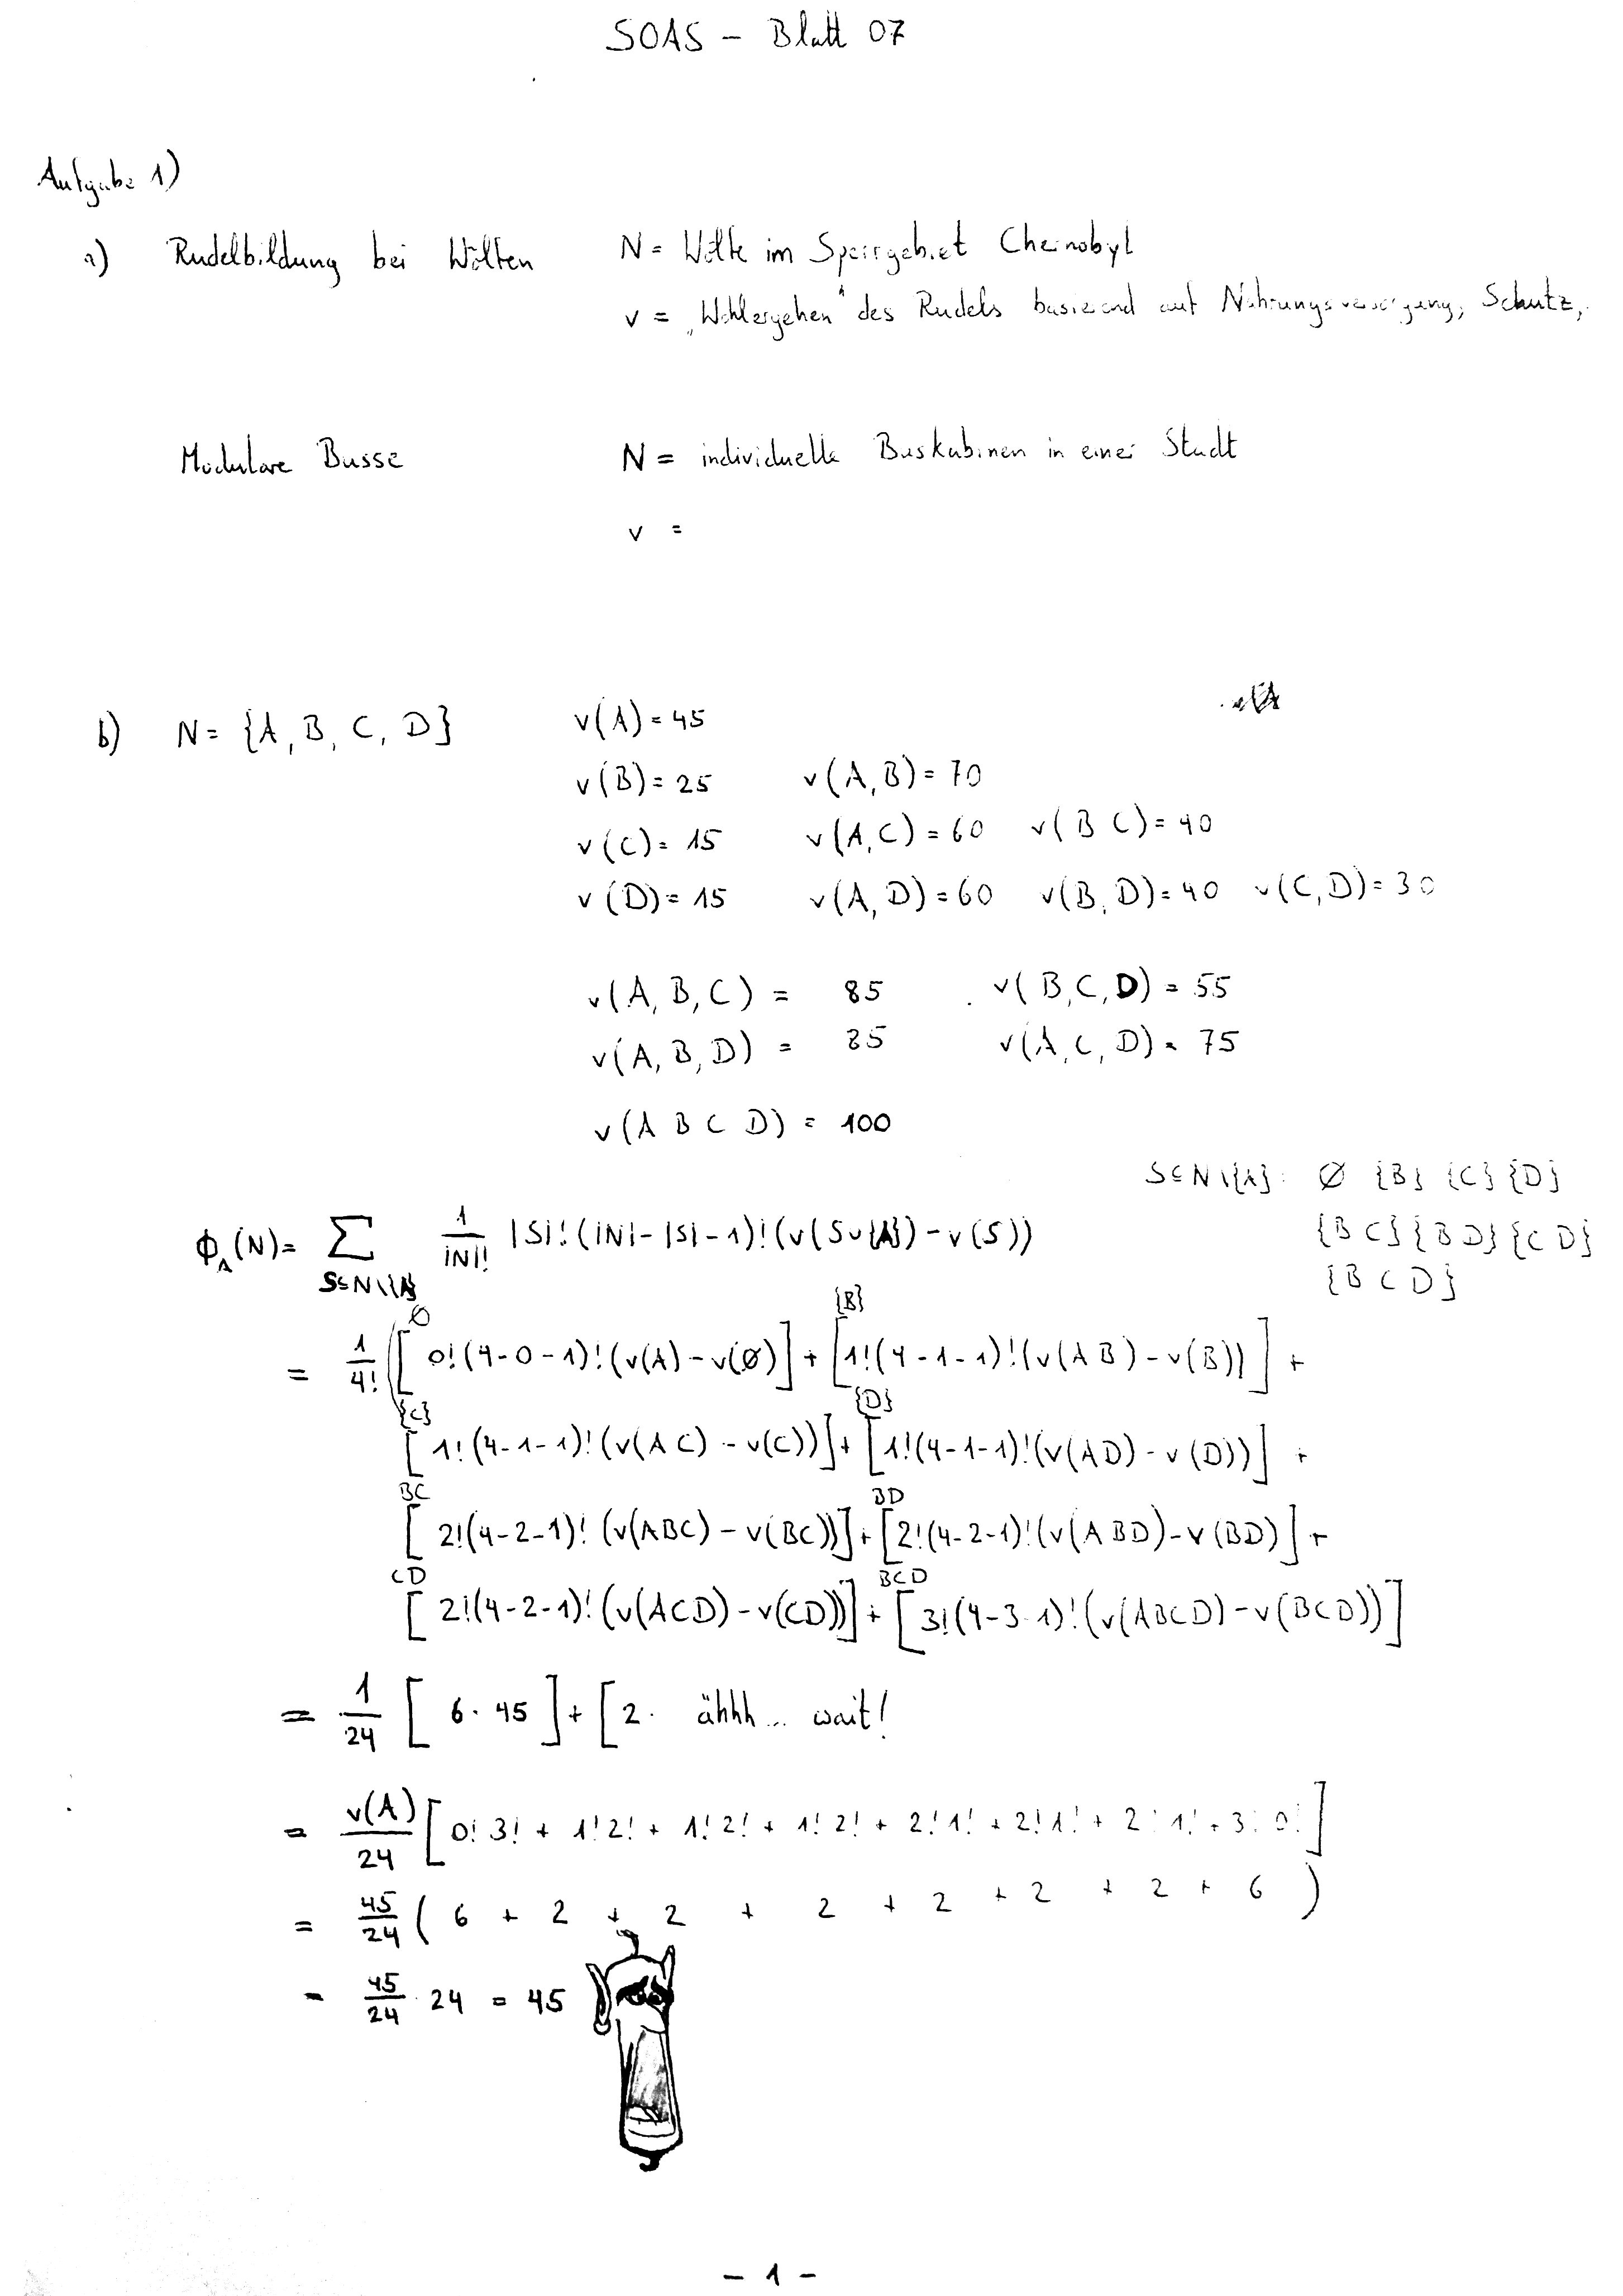 SOAS - Blatt 07
Aufgabe 1)
a) Rudelbildung bei Wölfen N = Wölfe im Sperrgebiet Chernobyl
v = „Wohlergehen“ des Rudels basierend auf Nahrungsversorgung, Schutz,
Modulare Busse N = individuelle Buskabinen in einer Stadt
v =
b) N = {A, B, C, D} v(A) = 45
v(B) = 25 v(A,B) = 70
v(C) = 15 v(A,C) = 60 v(B C) = 40
v(D) = 15 v(A,D) = 60 v(B,D) = 40 v(C,D) = 30
v(A, B, C) = 85 v(B,C,D) = 55
v(A, B, D) = 85 v(A,C,D) = 75
v(A B C D) = 100
S⊆N\{A}: ∅ {B} {C} {D}
{B C} {B D} {C D}
{B C D}
ϕ_A(N) = ∑_{S⊆N\{A}} 1/|N|! |S|! (|N| - |S| - 1)! (v(S∪{A}) - v(S))
∅ {B}
= 1/4! ( [ 0! (4-0-1)! (v(A) - v(∅) ] + [ 1! (4-1-1)! (v(A B) - v(B)) ] +
{C} {D}
[ 1! (4-1-1)! (v(A C) - v(C)) ] + [ 1! (4-1-1)! (v(AD) - v(D)) ] +
BC BD
[ 2! (4-2-1)! (v(ABC) - v(BC)) ] + [ 2! (4-2-1)! (v(ABD) - v(BD) ] +
CD BCD
[ 2! (4-2-1)! (v(ACD) - v(CD)) ] + [ 3! (4-3-1)! (v(ABCD) - v(BCD)) ]
= 1/24 [ 6 · 45 ] + [ 2 · ähhh... wait!
= v(A)/24 [ 0! 3! + 1! 2! + 1! 2! + 1! 2! + 2! 1! + 2! 1! + 2! 1! + 3! 0! ]
= 45/24 ( 6 + 2 + 2 + 2 + 2 + 2 + 2 + 6 )
= 45/24 · 24 = 45
- 1 -